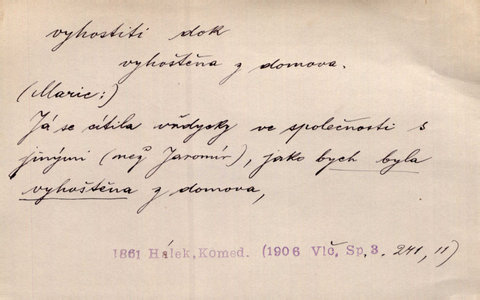 vyhostiti dok
vyhoštěna z domova.
(Marie:)
Já se cítila vždycky ve společnosti s
jinými (než Jaromír), jako bych byla
vyhoštěna z domova,
1861 Hálek, Komed. (1906 Vlč, Sp. 3. 241, 11)